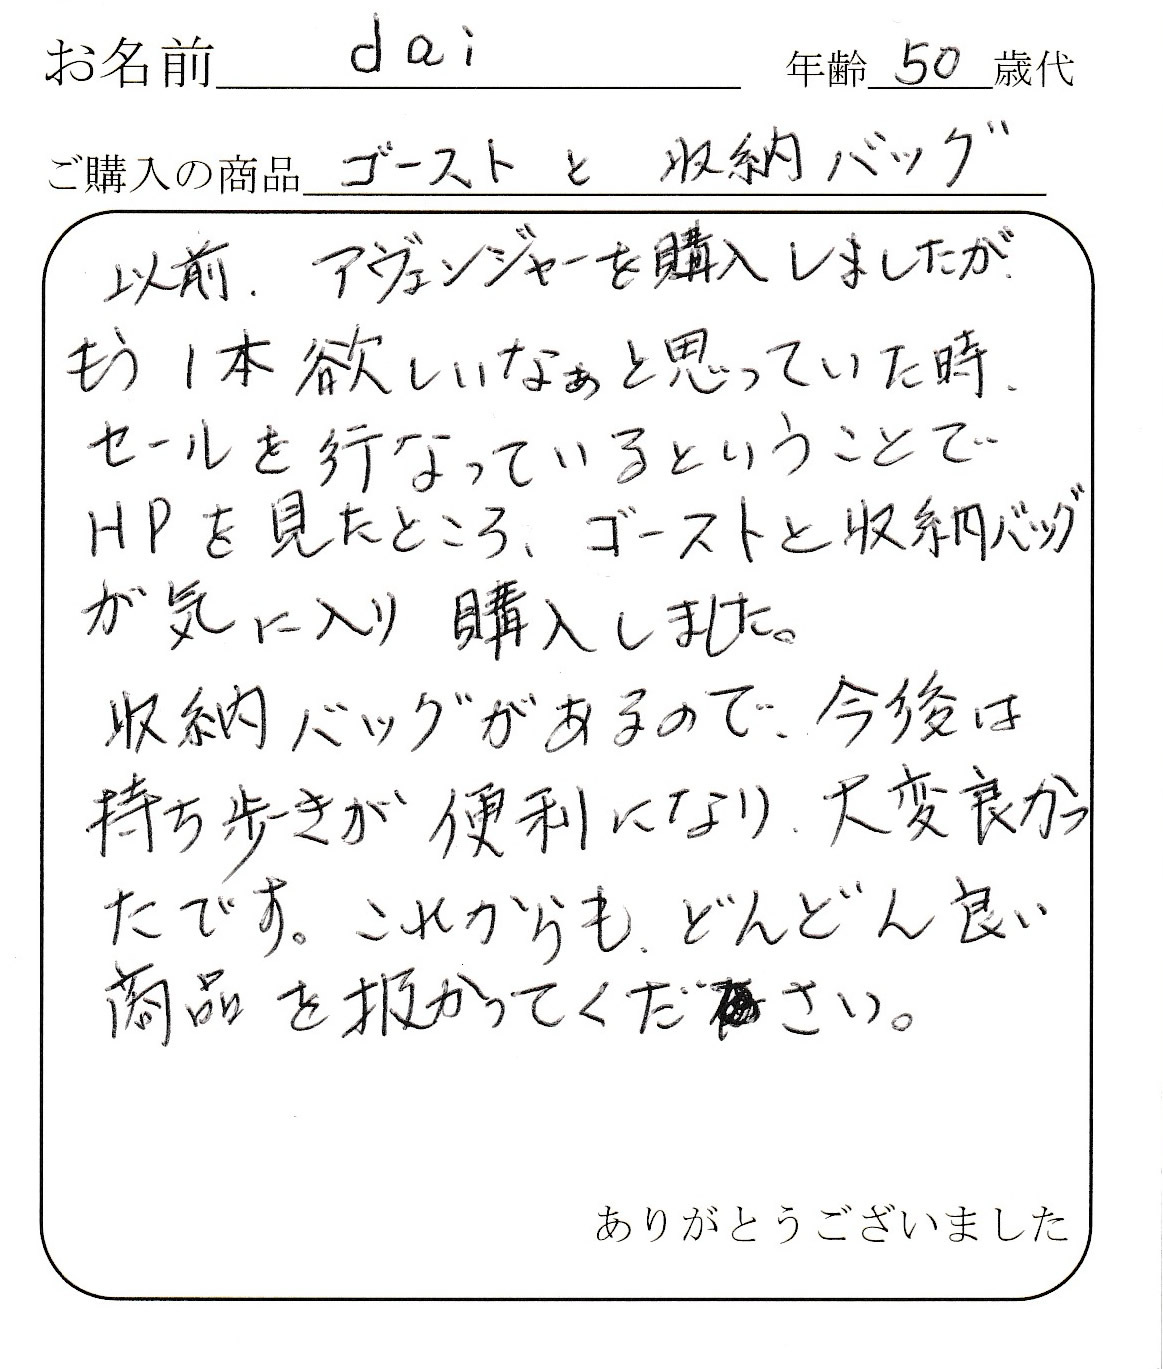 お名前 dai 年齢 50 歳代
ご購入の商品 ゴースト と 収納バッグ
以前、アヴェンジャーを購入しましたが、
もう1本欲しいなぁと思っていた時、
セールを行なっているということで
HPを見たところ、ゴーストと収納バッグ
が気に入り購入しました。
収納バッグがあるので、今後は
持ち歩きが便利になり、大変良かっ
たです。これからも、どんどん良い
商品を扱かってください。
ありがとうございました